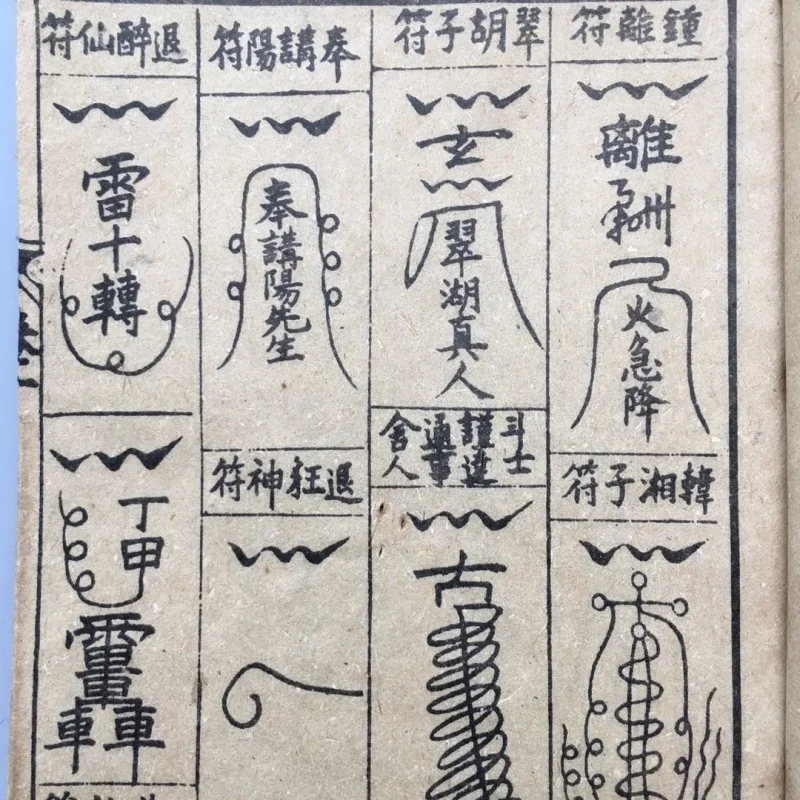 鍾離符
離
火急降
韓湘子符
翠胡子符
玄
翠湖真人
斗士
謹遣
通事
舍人
古
奉講陽符
奉講陽先生
退神符
退醉仙符
雷十轉
丁甲